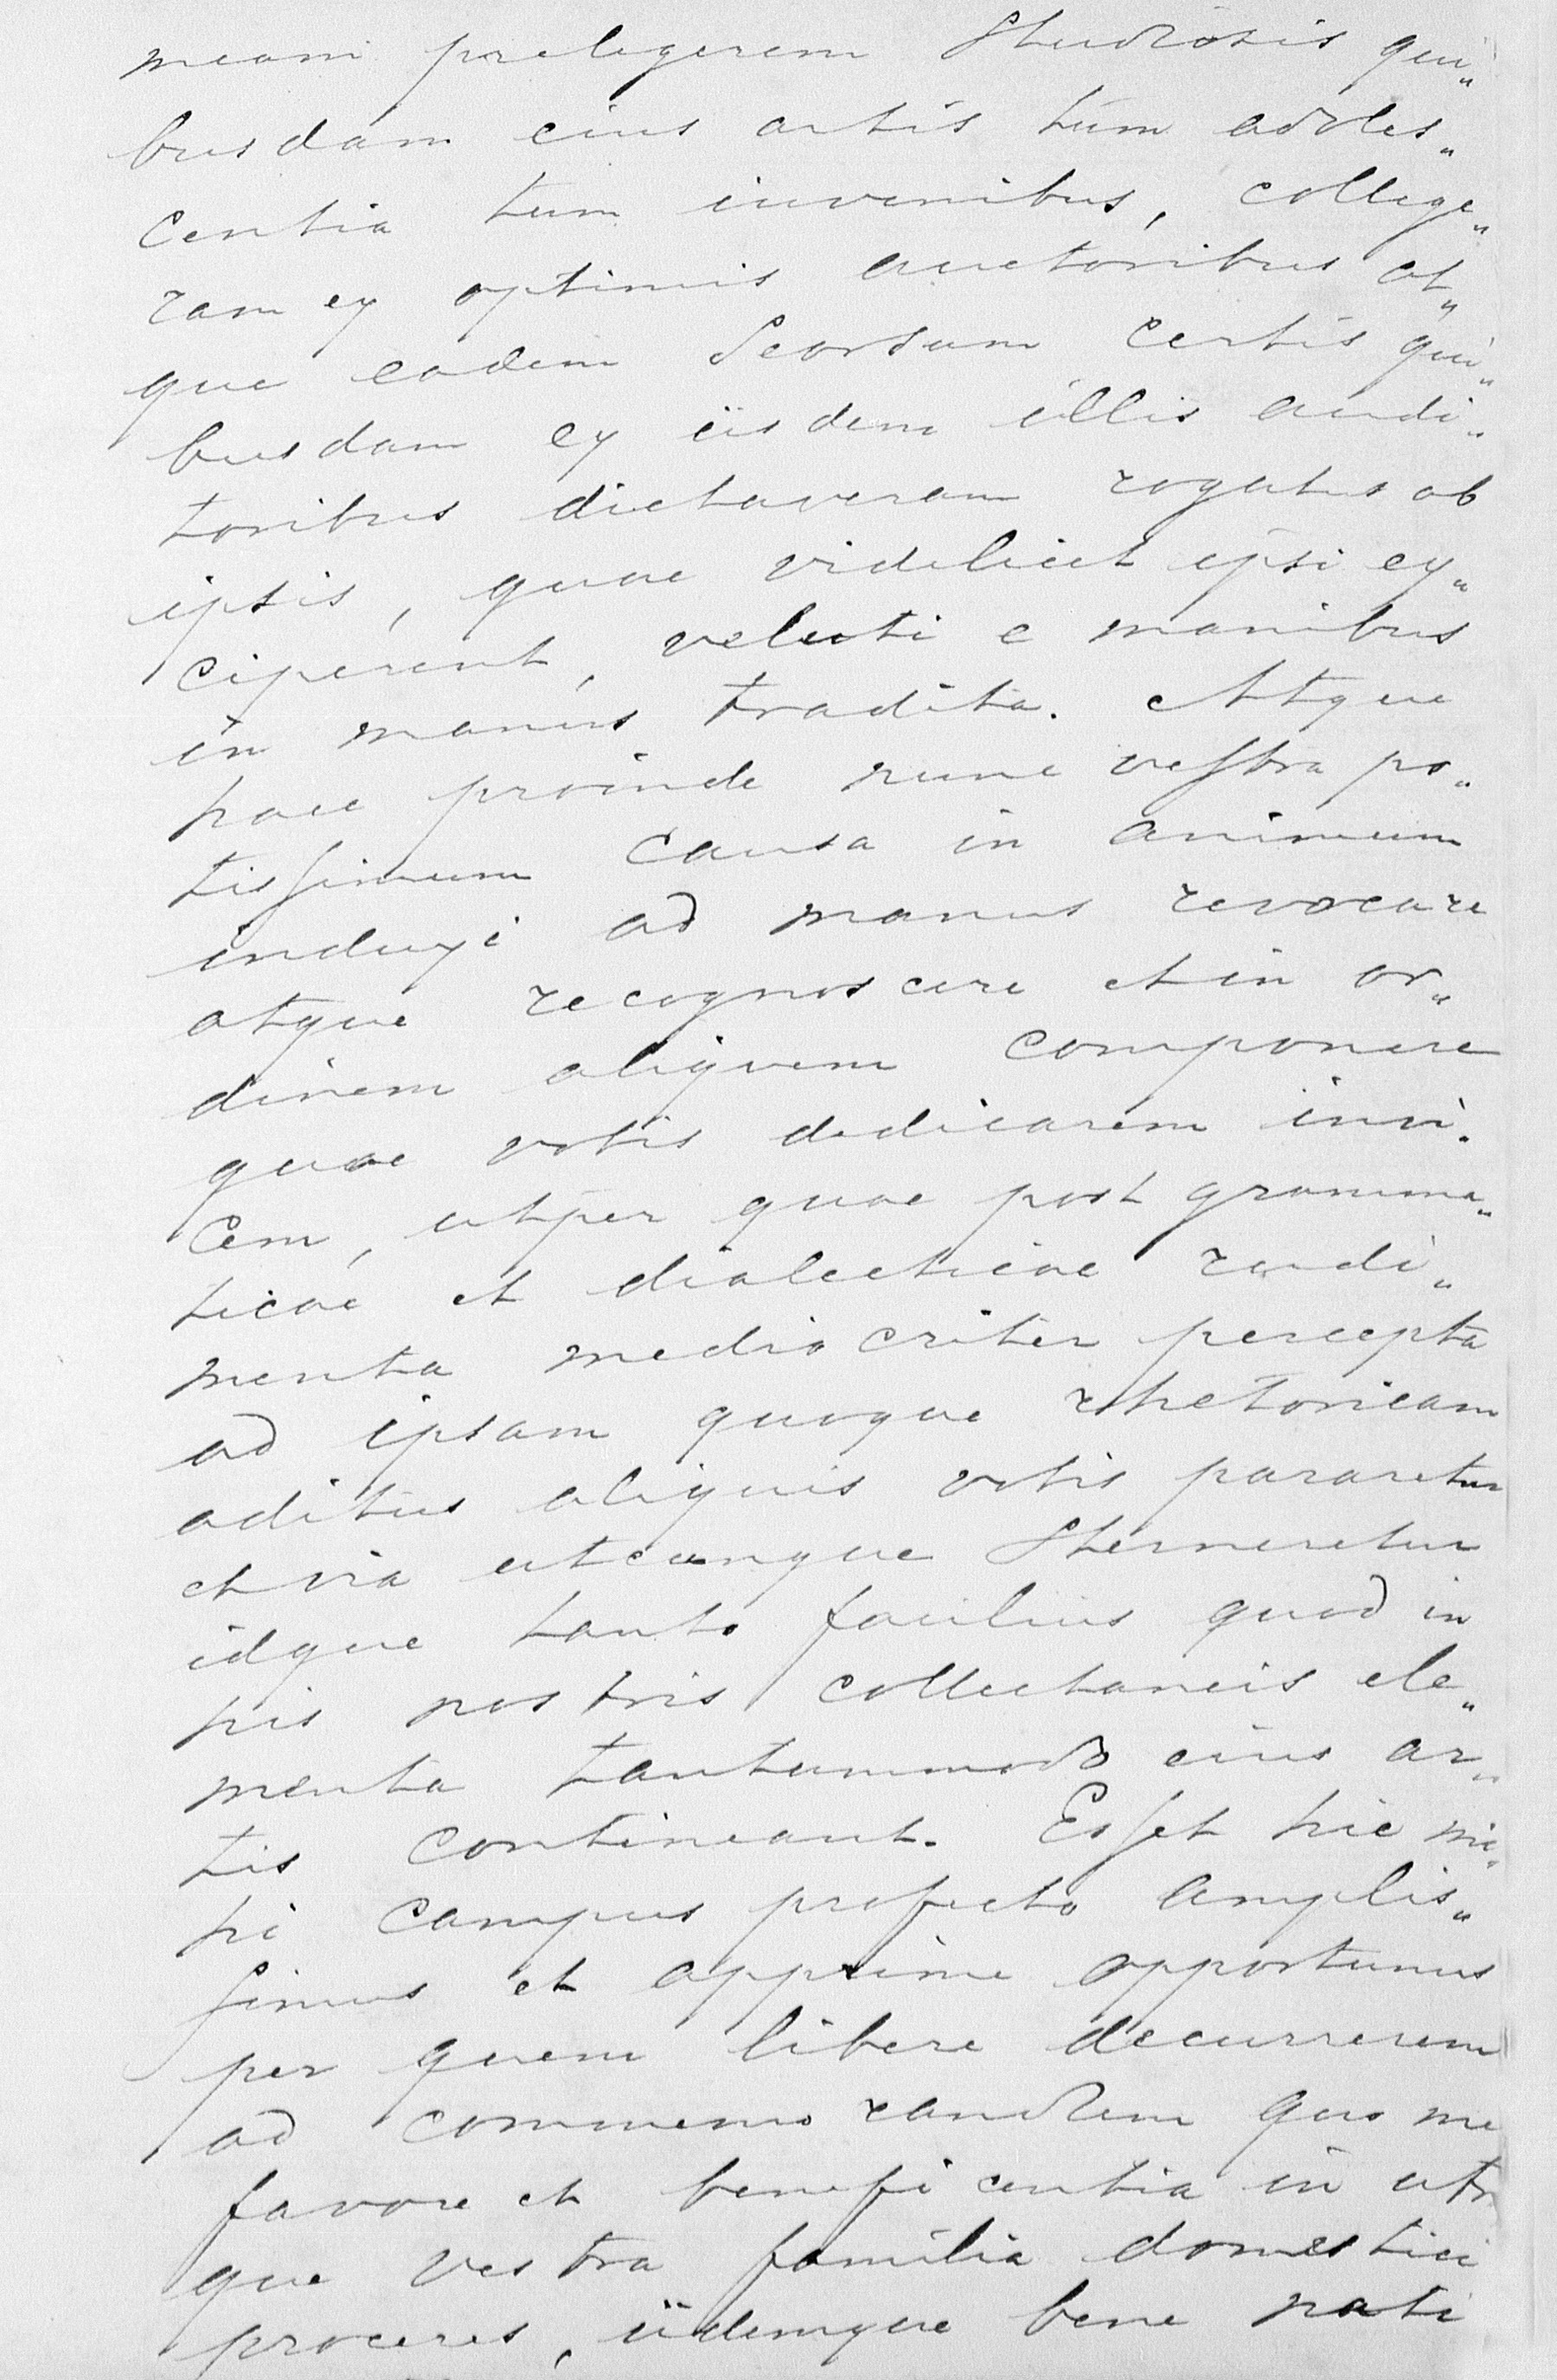 meam prelegerem studiosis qui„
busdam eius artis tum adoles„
centia tum iuvenibus, collige„
ram ex optimis auctoribus at„
que eadem seorsum certis qui„
busdam ex iisdem illis audi„
toribus dictaveram rogatus ab
ipsis, quae videlicet ipsi ex„
ciperent, veluti e manibus
in manus tradita. Atque
haec proinde nunc vestra po„
tissimum causa in animum
induxi ad manus revocare
atque recognoscere et in or„
dinem aliquem componere
quae vobis dedicarem invi„
cem, utper quae post gramma„
ticae et dialecticae rudi„
menta mediocriter percepta
ad ipsam quoque rhetoricam
aditus aliquis vobis pararetur
et via utcunque sterneretur
idque tanto facilius quod in
his nostris collectaneis ele„
menta tantummodo eius ar„
tis contineant. Esset hic mi„
hi campus profecto amplis„
simus et apprime opportunus
per quem libere decurrerem
ad commemorandum quo me
favore et beneficentia in utr
que vestra familia domestici
proceres, iidemque bene nati